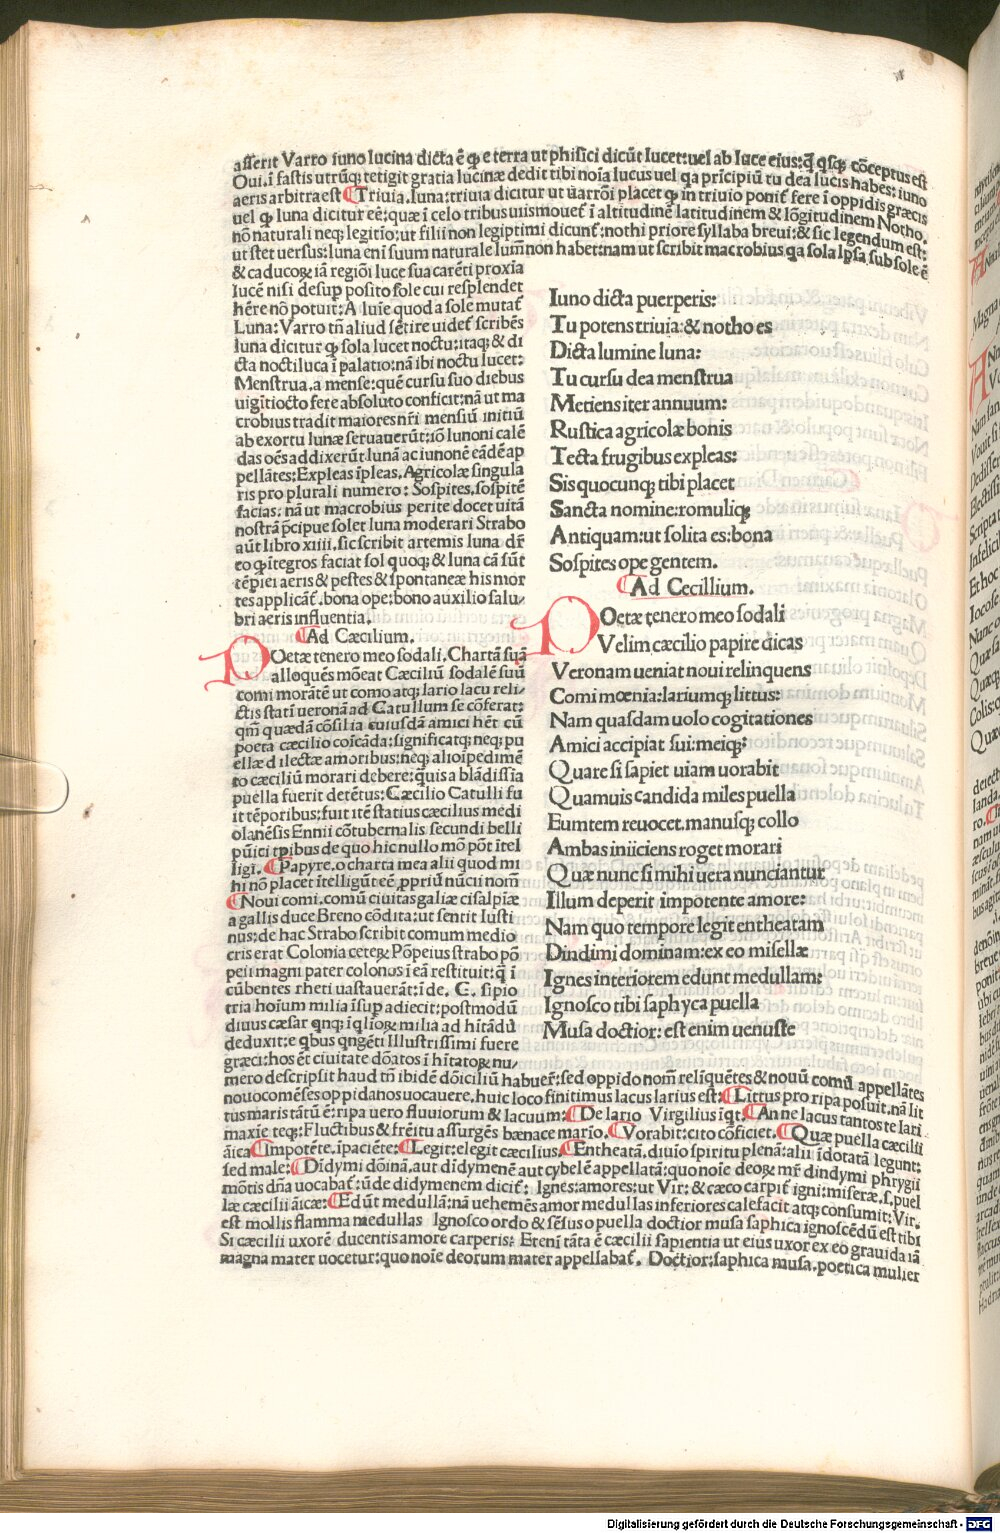 asserit Varro iuno lucina dicta ē qꝫ e terra ut phisici dicūt lucet: uel ab luce eius: q̄ qsqꝫ cōceptus est
Oui. ī fastis utrūqꝫ tetigit gratia lucinæ dedit tibi noīa lucus uel qa prīcipiū tu dea lucis habes: iuno
aeris arbitra est ¶ Triuia. luna: triuia dicitur ut uarrōi placet qꝫ in triuio ponit̄ fere ī oppidis græcis
uel qꝫ luna dicitur eē: quæ ī celo tribus uiis mouet̄ ī altitudinē latitudinem & lōgitudinem Notho.
nō naturali neqꝫ legitio: ut filii non legiptimi dicunt̄: nothi priore syllaba breui: & sic legendum est:
ut stet uersus: luna eni suum naturale lum̄ non habet: nam ut scribit macrobius qa sola ipsa sub sole ē
& caducoꝝ iā regiōi luce sua carēti proxīa
lucē nisi desup posito sole cui resplendet
hēre nō potuit: A luīe quod a sole mutat̄
Luna: Varro tn̄ aliud sētire uidet̄ scribēs
luna dicitur qꝫ sola lucet noctu: itaqꝫ & di
cta noctiluca ī palatio: nā ibi noctu lucet:
Menstrua. a mense: quē cursu suo diebus
uigītiocto fere absoluto conficit: nā ut ma
crobius tradit maiores nr̄i mensiū initiū
ab exortu lunæ seruauerūt: iō Iunoni calē
das oēs addixerūt lunā ac iunonē eādē ap
pellātes: Expleas īpleas. Agricolæ singula
ris pro plurali numero: Sospites. sospitē
facias: nā ut macrobius perite docet uitā
nostrā p̄cipue solet luna moderari Strabo
aūt libro xiiii. sic scribit artemis luna dr̄
eo qꝫ ītegros faciat sol quoqꝫ & luna cā sūt
tēpiei aeris & pestes & spontaneæ his mor
tes applicāt̄. bona ope: bono auxilio salu⸗
bri aeris influentia.
¶ Ad Cæcilium.
POetæ tenero meo sodali. Chartā suā
alloquēs mōeat Cæciliū sodalē suū
comi morātē ut como atqꝫ lario lacu reli⸗
ctis statī ueronā ad Catullum se cōferat:
qm̄ quædā cōsilia cuiusdā amici hēt cū
poeta cæcilio coīcāda: significatqꝫ neqꝫ pu
ellæ dilectæ amoribus: neqꝫ alio īpedimē
to cæciliū morari debere: q̄uis a blādissīa
puella fuerit detētus: Cæcilio Catulli fu
it tēporibus: fuit itē statius cæcilius medi
olanēsis Ennii cōtubernalis secundi belli
pūici tp̄ibus de quo hic nullo mō pōt ītel
ligi. ¶ Papyre. o charta mea alii quod mi
hi nō placet ītelligūt eē ꝓpriū nūcii nom̄
¶ Noui comi. comū ciuitas galiæ cisalpīæ
a gallis duce Breno cōdita: ut sentit Iusti
nus: de hac Strabo scribit comum medio
cris erat Colonia ceteꝝ Pōpeius strabo pō
peii magni pater colonos ī eā restituit: q̄ ī
cūbentes rheti uastauerāt: ī de. C. sipio
tria hoīum milia īsup adiecit: postmodū
diuus cæsar qnqꝫ ī qlioꝝ milia ad hītādū
deduxit: e qbus qngēti Illustrissimi fuere
græci: hos ēt ciuitate dōatos ī hītatoꝝ nu⸗
mero descripsit haud tn̄ ibidē dōiciliū habuer̄: sed oppido nom̄ reliquētes & nouū comū appellātes
nouocomēses oppidanos uocauere. huic loco finitimus lacus larius est: ¶ Littus pro ripa posuit. nā lit
tus maris tātū ē: ripa uero fluuiorum & lacuum: ¶ De lario Virgilius iq̄t: ¶ An ne lacus tantos te lari
maxie teqꝫ: Fluctibus & fremitu assurgēs bænace marīo. ¶ Vorabit: cito cōficiet. ¶ Quæ puella cæcilii
āica ¶ Impotēte. īpaciēte: ¶ Legit: elegit cæcilius. ¶ Entheatā. diuīo spiritu plenā: alii īdotatā legunt:
sed male: ¶ Didymi dōinā. aut didymenē aut cybelē appellatā: quo noīe deoꝝ mr̄ dindymi phrygii
mōtis dn̄a uocabat̄: ūde didymenem dicit̄: Ignes: amores: ut Vir: & cæco carpit̄ igni: miseræ. s. puel
læ cæcilii āicæ: ¶ Edūt medullā: nā uehemēs amor medullas inferiores calefacit atqꝫ consumit: Vir.
est mollis flamma medullas Ignosco ordo & sēsus o puella doctior musa saphica ignoscēdū est tibi
Si cæcilii uxorē ducentis amore carperis: Etenī tāta ē cæcilii sapientia ut eius uxor ex eo grauida iā
magna mater uocetur: quo noīe deorum mater appellabat̄. Doctior: saphica musa. poetica mulier
Iuno dicta puerperis:
Tu potens triuia: & notho es
Dicta lumine luna:
Tu cursu dea menstrua
Metiens iter annuum:
Rustica agricolæ bonis
Tecta frugibus expleas:
Sis quocunqꝫ tibi placet
Sancta nomine: romuliqꝫ
Antiquam: ut solita es: bona
Sospites ope gentem.
¶ Ad Cecillium.
POetæ tenero meo sodali
Velim cæcilio papire dicas
Veronam ueniat noui relinquens
Comi mœnia: lariumqꝫ littus:
Nam quasdam uolo cogitationes
Amici accipiat sui: meiqꝫ:
Quare si sapiet uiam uorabit
Quamuis candida miles puella
Eumtem reuocet. manusqꝫ collo
Ambas iniiciens roget morari
Quæ nunc si mihi uera nunciantur
Illum deperit impotente amore:
Nam quo tempore legit entheatam
Dindimi dominam: ex eo misellæ
Ignes interiorem edunt medullam:
Ignosco tibi saphyca puella
Musa doctior: est enim uenuste
Digitalisierung gefördert durch die Deutsche Forschungsgemeinschaft - DFG